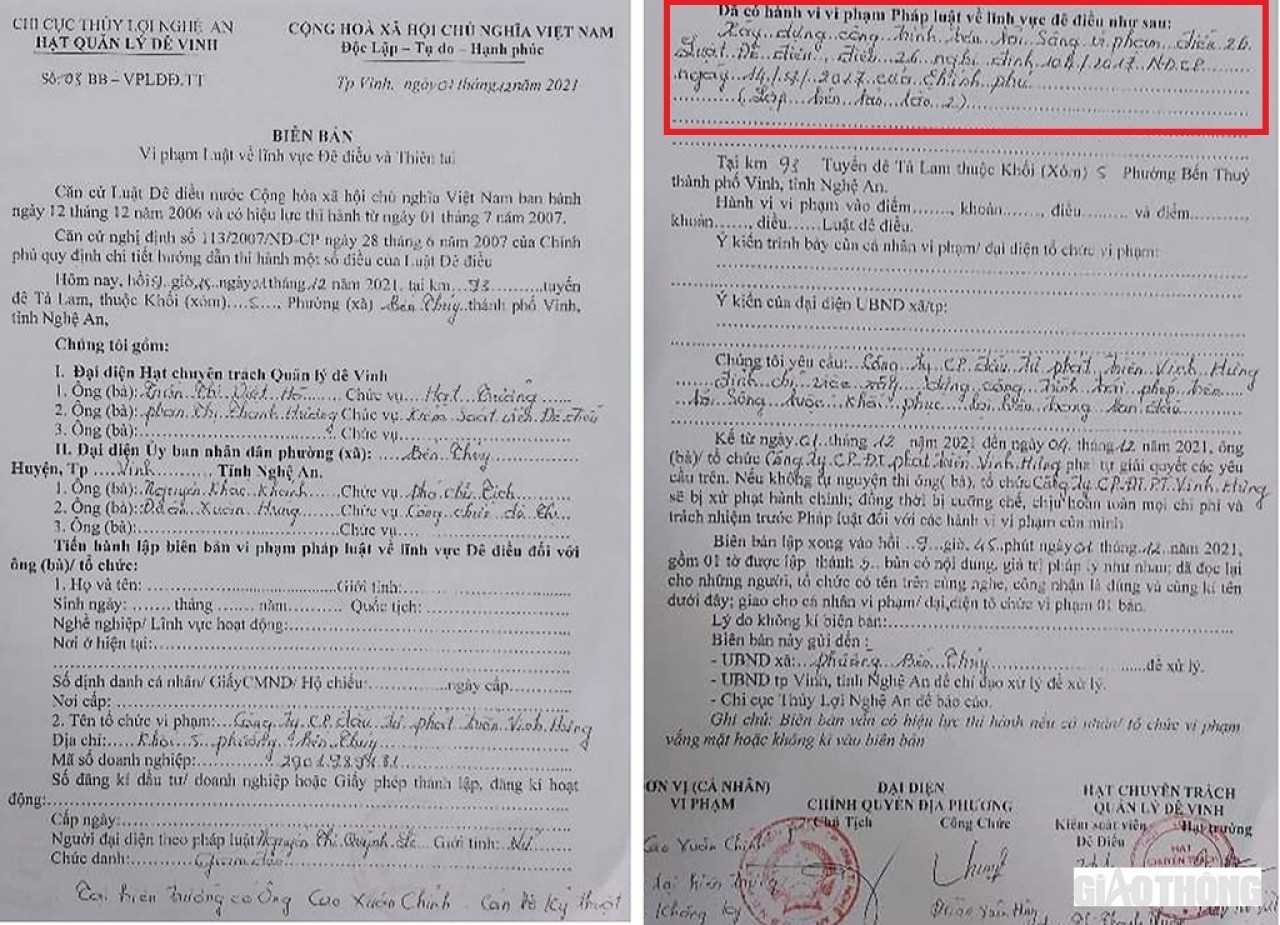 CHI CỤC THỦY LỢI NGHỆ AN
HẠT QUẢN LÝ ĐÊ VINH
Số: 03 BB – VPLĐĐ.TT
CỘNG HOÀ XÃ HỘI CHỦ NGHĨA VIỆT NAM
Độc Lập – Tự do – Hạnh phúc
Tp Vinh, ngày 01 tháng 12 năm 2021
BIÊN BẢN
Vi phạm Luật về lĩnh vực Đê điều và Thiên tai
Căn cứ Luật Đê điều nước Cộng hòa xã hội chủ nghĩa Việt Nam ban hành
ngày 12 tháng 12 năm 2006 và có hiệu lực thi hành từ ngày 01 tháng 7 năm 2007.
Căn cứ nghị định số 113/2007/NĐ-CP ngày 28 tháng 6 năm 2007 của Chính
phủ quy định chi tiết hướng dẫn thi hành một số điều của Luật Đê điều
Hôm nay, hồi 9 giờ, ngày 01 tháng 12 năm 2021, tại km 93 tuyến
đê Tả Lam, thuộc Khối (xóm) 5, Phường (xã) Bến Thủy thành phố Vinh,
tỉnh Nghệ An,
Chúng tôi gồm:
I. Đại diện Hạt chuyên trách Quản lý đê Vinh
1. Ông (bà): Trần Thị Việt Hà Chức vụ Hạt Trưởng
2. Ông (bà): Phan Thị Thanh Hương Chức vụ Kiểm soát viên Đê điều
3. Ông (bà): Chức vụ
II. Đại diện Ủy ban nhân dân phường (xã): Bến Thủy
Huyện, Tp Vinh Tỉnh Nghệ An.
1. Ông (bà): Nguyễn Khắc Khánh Chức vụ Phó chủ tịch
2. Ông (bà): Đoàn Xuân Hưng Chức vụ Công chức đô thị
3. Ông (bà): Chức vụ
Tiến hành lập biên bản vi phạm pháp luật về lĩnh vực Đê điều đối với
ông (bà)/ tổ chức:
1. Họ và tên: Giới tính:
Sinh ngày: tháng năm Quốc tịch:
Nghề nghiệp/ Lĩnh vực hoạt động:
Nơi ở hiện tại:
Số định danh cá nhân/ GiấyCMND/ Hộ chiếu: ngày cấp
Nơi cấp:
2. Tên tổ chức vi phạm: Công ty CP đầu tư phát triển Vinh Hưng
Địa chỉ: Khối 5 phường Bến Thủy
Mã số doanh nghiệp:
Số đăng kí đầu tư/ doanh nghiệp hoặc Giấy phép thành lập, đăng kí hoạt
động:
Cấp ngày:
Người đại diện theo pháp luật Nguyễn Thị Quỳnh Giới tính: Nữ
Chức danh: Giám đốc
Tại hiện trường có Ông Cao Xuân Chinh - Cán bộ kỹ thuật
Đã có hành vi vi phạm Pháp luật về lĩnh vực đê điều như sau:
Xây dựng công trình trên bãi Sông vi phạm điều 26
Luật Đê điều, điều 26 nghị định 104/2017 NĐ.CP
ngày 14/ /2017 của Chính phủ
Tại km 93 Tuyến đê Tả Lam thuộc Khối (Xóm) 5 Phường Bến Thuỷ
thành phố Vinh, tỉnh Nghệ An.
Hành vi vi phạm vào điểm, khoản, điều và điểm,
khoản, điều Luật đê điều.
Ý kiến trình bày của cá nhân vi phạm/ đại diện tổ chức vi phạm:
Ý kiến của đại diện UBND xã/tp:
Chúng tôi yêu cầu: Công ty CP đầu tư phát triển Vinh Hưng
đình chỉ việc xây dựng công trình trái phép trên
bãi Sông buộc khôi phục lại ban đầu
Kể từ ngày 01 tháng 12 năm 2021 đến ngày 04 tháng 12 năm 2021, ông
(bà)/ tổ chức Công ty CP.ĐT phát triển Vinh Hưng phải tự giải quyết các yêu
cầu trên. Nếu không tự nguyện thì ông( bà), tổ chức Công ty CP.ĐT.PT.Vinh Hưng
sẽ bị xử phạt hành chính; đồng thời bị cưỡng chế, chịu hoàn toàn mọi chi phí và
trách nhiệm trước Pháp luật đối với các hành vi vi phạm của mình
Biên bản lập xong vào hồi 9 giờ, 45 phút ngày 01 tháng 12 năm 2021,
gồm 01 tờ được lập thành 5 bản có nội dung, giá trị pháp lý như nhau; đã đọc lại
cho những người, tổ chức có tên trên cùng nghe, công nhận là đúng và cùng kí tên
dưới đây; giao cho cá nhân vi phạm/ đại diện tổ chức vi phạm 01 bản.
Lý do không kí biên bản:
Biên bản này gửi đến :
- UBND xã: phường Bến Thủy để xử lý.
- UBND tp Vinh, tỉnh Nghệ An để chỉ đạo xử lý để xử lý.
- Chi cục Thủy Lợi Nghệ An để báo cáo.
Ghi chú: Biên bản vẫn có hiệu lực thi hành nếu cá nhân/ tổ chức vi phạm
vắng mặt hoặc không kí vào biên bản
ƠN VỊ (CÁ NHÂN)
VI PHẠM
ĐẠI DIỆN
CHÍNH QUYỀN ĐỊA PHƯƠNG
Chủ Tịch Công Chức
HẠT CHUYÊN TRÁCH
QUẢN LÝ ĐÊ VINH
Kiểm soát viên Hạt trưởng
Đê Điều
Cao Xuân Chinh
Đại hiện trường
không ký
Đoàn Xuân Hưng
HẠT
CHUYÊN TRÁCH
GIAOTHÔNG